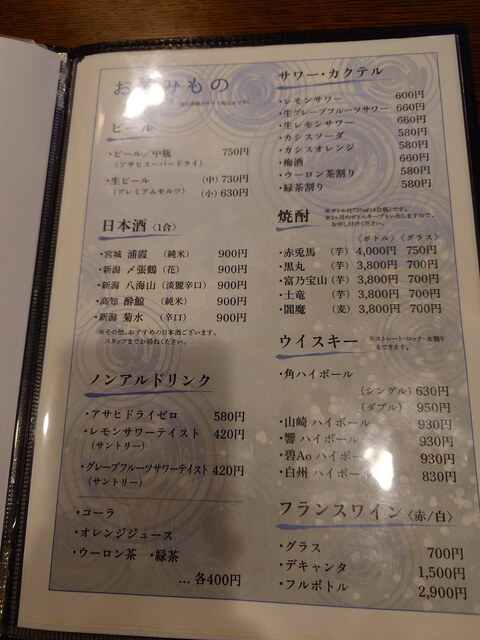 お飲みもの
ビール
・ビール／中瓶 750円
（アサヒスーパードライ）
・生ビール （中）730円
（プレミアムモルツ） （小）630円
日本酒〈1合〉
・宮城 浦霞 （純米） 900円
・新潟 〆張鶴（花） 900円
・新潟 八海山（淡麗辛口） 900円
・高知 酔鯨 （純米） 900円
・新潟 菊水 （辛口） 900円
※その他、おすすめの日本酒ございます。
スタッフまでお尋ねください。
ノンアルドリンク
・アサヒドライゼロ 580円
・レモンサワーテイスト 420円
（サントリー）
・グレープフルーツサワーテイスト 420円
（サントリー）
・コーラ
・オレンジジュース
・ウーロン茶 ・緑茶
… 各400円
サワー・カクテル
・レモンサワー 600円
・生グレープフルーツサワー 660円
・生レモンサワー 660円
・カシスソーダ 580円
・カシスオレンジ 580円
・梅酒 660円
・ウーロン茶割り 580円
・緑茶割り 580円
焼酎
〈ボトル〉〈グラス〉
・赤兎馬 （芋） 4,000円 750円
・黒丸 （芋） 3,800円 700円
・富乃宝山（芋） 3,800円 700円
・土竜 （芋） 3,800円 700円
・閻魔 （麦） 3,800円 700円
ウイスキー
※ストレート・ロック・水割り
もできます。
・角ハイボール
（シングル）630円
（ダブル） 950円
・山崎 ハイボール 930円
・響 ハイボール 930円
・碧Ao ハイボール 930円
・白州 ハイボール 830円
フランスワイン〈赤/白〉
・グラス 700円
・デキャンタ 1,500円
・フルボトル 2,900円